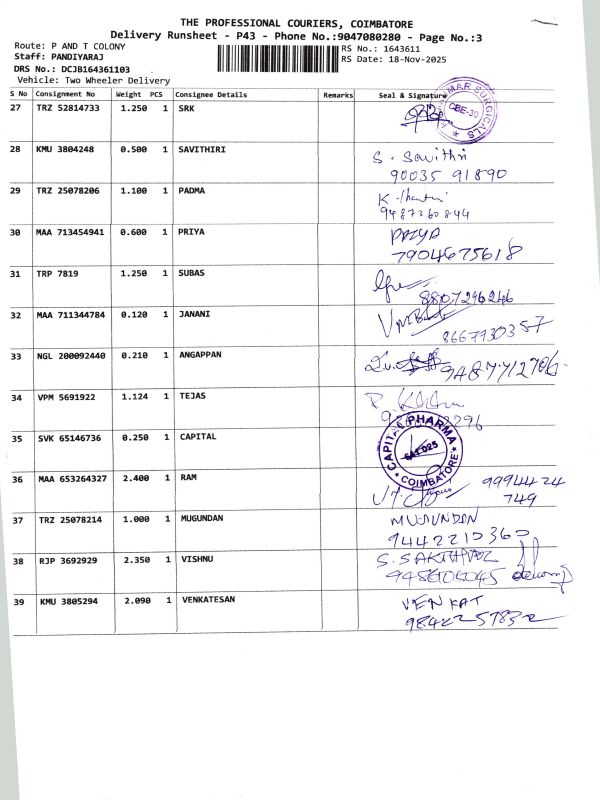 THE PROFESSIONAL COURIERS, COIMBATORE
Delivery Runsheet - P43 - Phone No.:9047080280 - Page No.:3
Route: P AND T COLONY
Staff: PANDIYARAJ
DRS No.: DCJB164361103
Vehicle: Two Wheeler Delivery
RS No.: 1643611
RS Date: 18-Nov-2025
S No Consignment No Weight PCS Consignee Details Remarks Seal & Signature
27 TRZ 52814733 1.250 1 SRK
SURGICALS CBE-30
28 KMU 3804248 0.500 1 SAVITHIRI
S. Savithri
90035 91890
29 TRZ 25078206 1.100 1 PADMA
9487360844
30 MAA 713454941 0.600 1 PRIYA
PRIYA
7904675618
31 TRP 7819 1.250 1 SUBAS
8807296246
32 MAA 711344784 0.120 1 JANANI
8667730357
33 NGL 200092440 0.210 1 ANGAPPAN
9487712706
34 VPM 5691922 1.124 1 TEJAS
35 SVK 65146736 0.250 1 CAPITAL
CAPITAL PHARMA
641 025
COIMBATORE
36 MAA 653264327 2.400 1 RAM
9994424
749
37 TRZ 25078214 1.000 1 MUGUNDAN
MUGUNDAN
9442210360
38 RJP 3692929 2.350 1 VISHNU
S. SAKTHIVEL
39 KMU 3805294 2.090 1 VENKATESAN
VENKAT